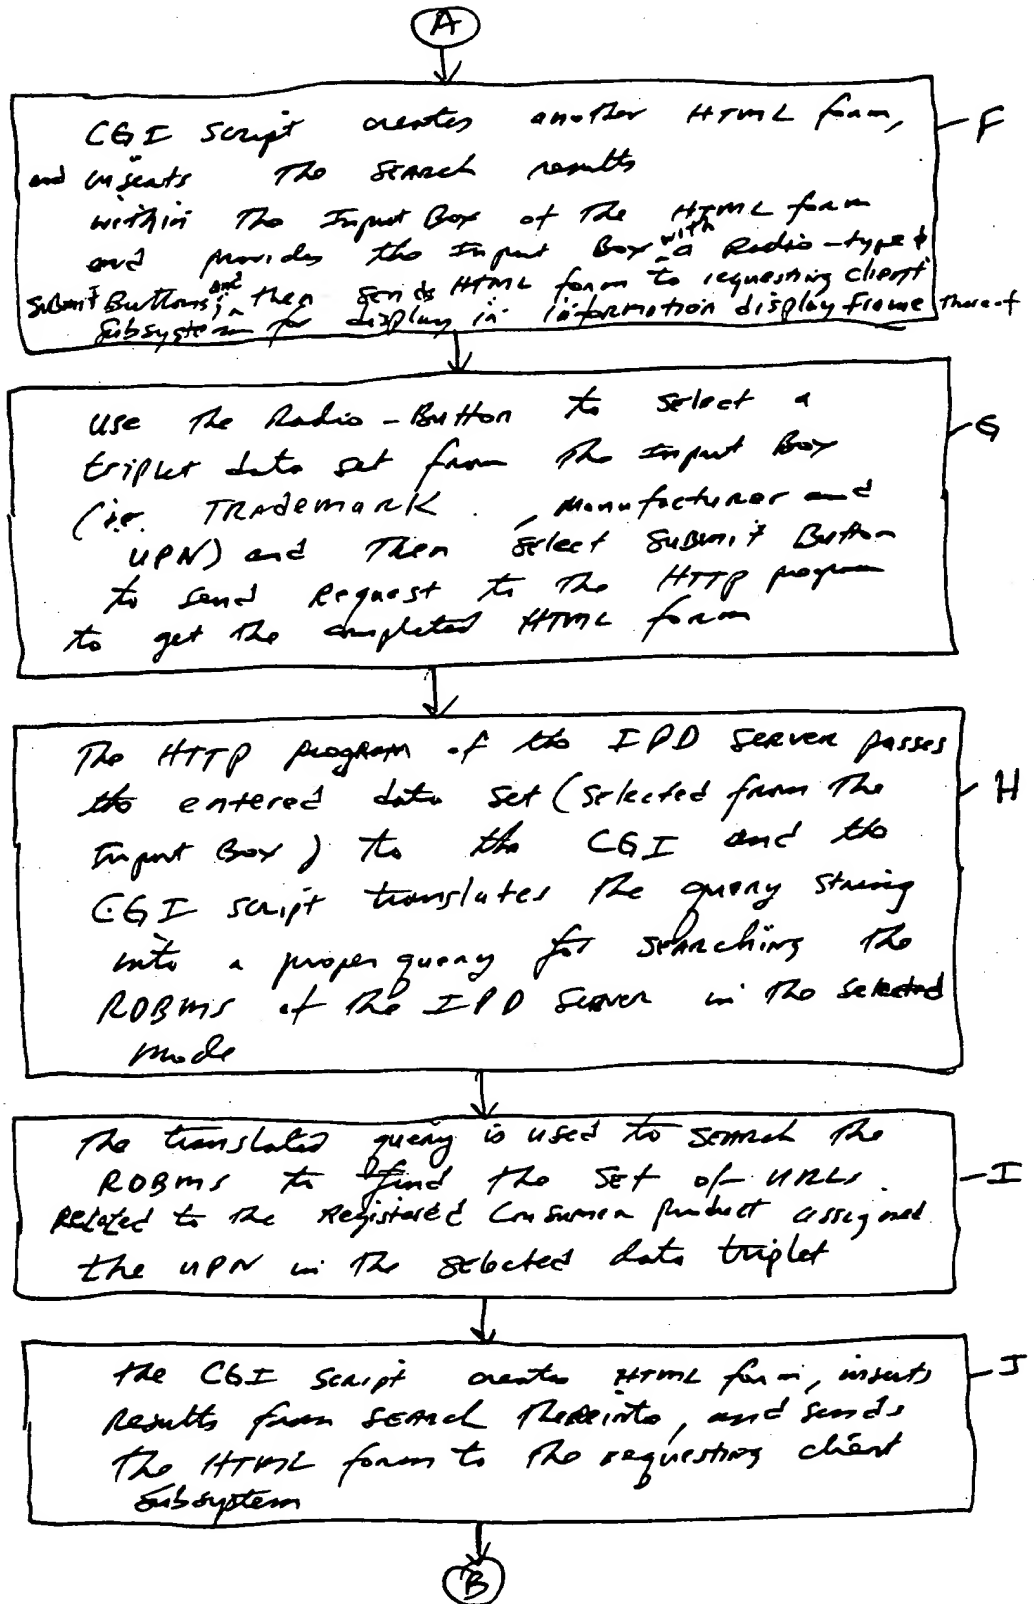 A
CGI Script creates another HTML form, F
and inserts The SEARCH results
within The Input Box of The HTML form
and provides the Input Box with a Radio-type &
Submit Buttons; and then sends HTML form to requesting client
Subsystem for display in information display frame thereof
use The Radio-Button to select a
triplet data set from The Input Box G
(i.e. TRADEMARK , Manufacturer and
UPN) and Then Select Submit Button
to send Request to The HTTP program
to get The completed HTML form
The HTTP program of the IPD Server passes
the entered data set (Selected from The H
Input Box) to the CGI and the
CGI script translates The query string
into a proper query for SEARCHING The
RDBMS of the IPD Server in The selected
mode
The translated query is used to SEARCH The
RDBMS to find The SET of URLs I
Related to The Registered Consumer product assigned
the UPN in The selected data triplet
the CGI Script creates HTML form, inserts J
Results from SEARCH Thereinto, and sends
The HTML form to The requesting client
Subsystem
B